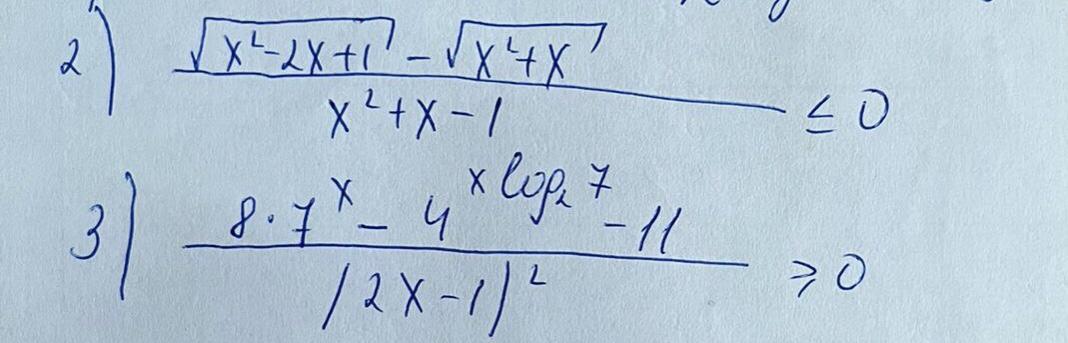 2) (√(x²-2x+1) - √(x²+x)) / (x²+x-1) ≤ 0
3) (8·7^x - 4^(x log₂ 7) - 11) / (2x-1)² ≥ 0